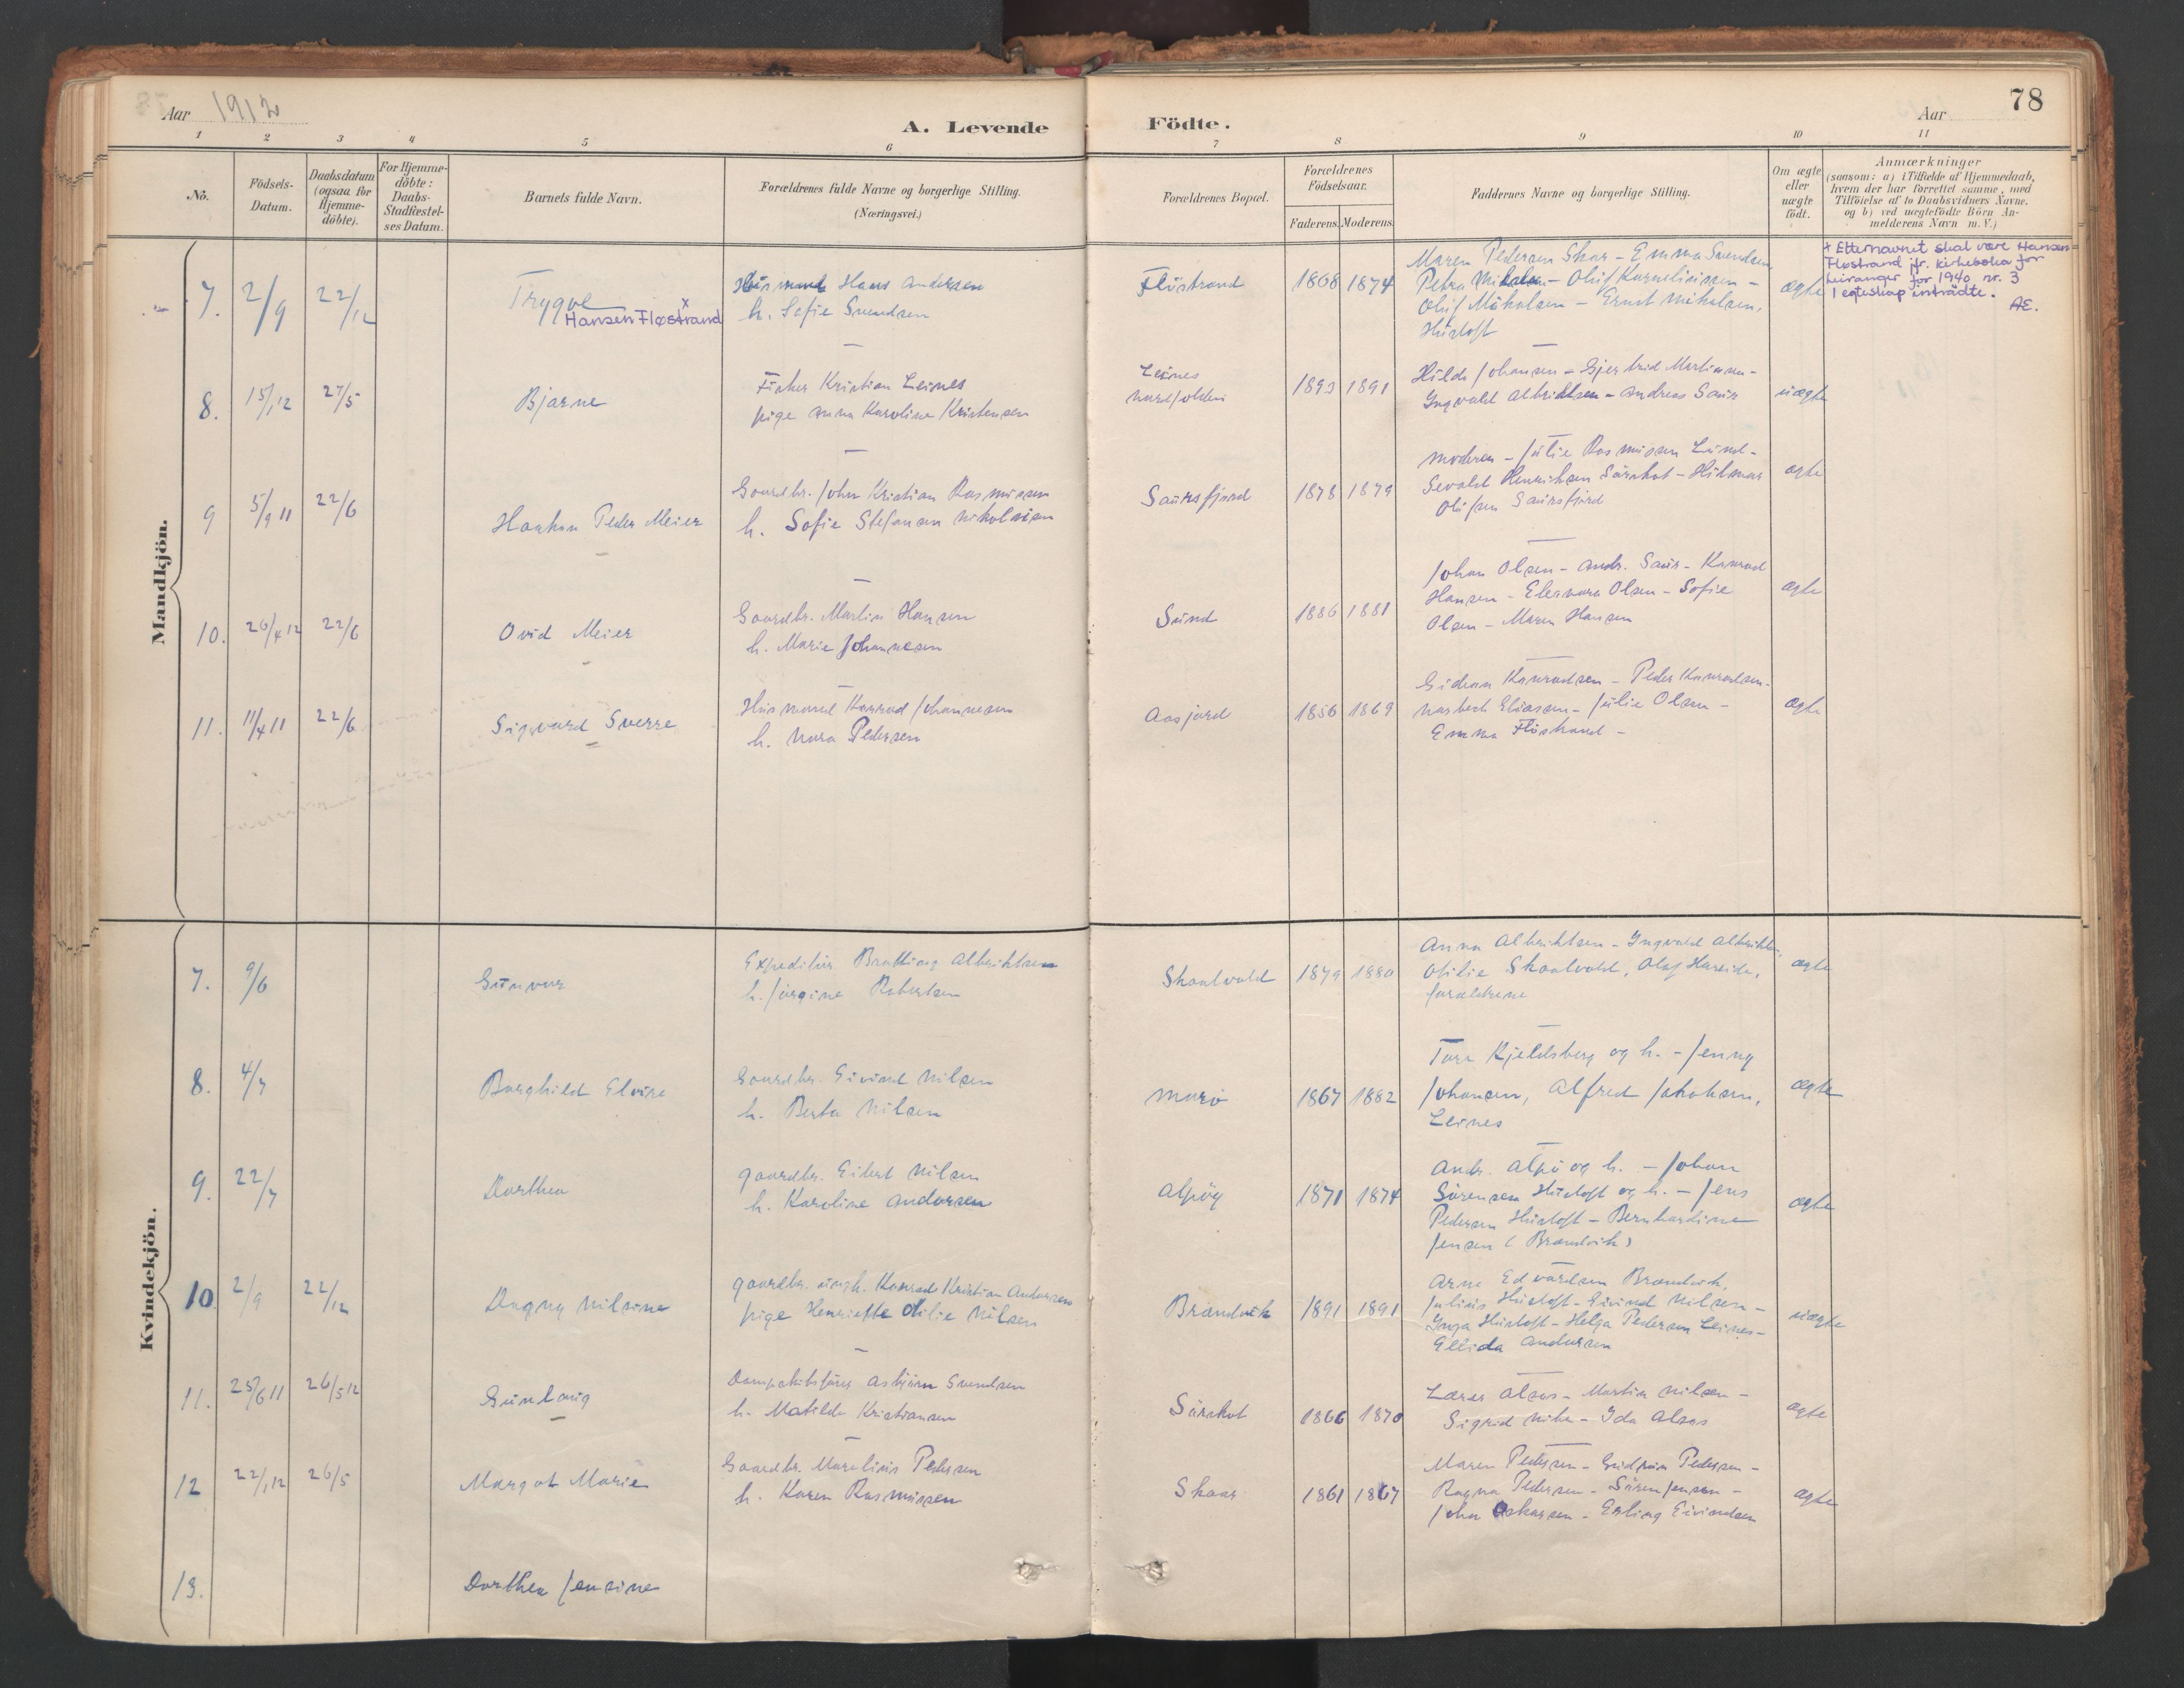 Aar 1912
A. Levende
Födte.
Aar
78
1 2 3 4 5 6 7 8 9 10 11
No.
Födsels-
Datum.
Daabsdatum
(ogsaa for
Hjemme-
döbte).
For Hjemme-
döbte:
Daabs-
Stadfæstel-
ses Datum.
Barnets fulde Navn.
Forældrenes fulde Navne og borgerlige Stilling.
(Næringsvei.)
Forældrenes Bopæl.
Forældrenes
Födselsaar.
Faderens. Moderens.
Faddernes Navne og borgerlige Stilling.
Om ægte
eller
uægte
födt.
Anmærkninger
(saasom: a) i Tilfælde af Hjemmedaab,
hvem der har forrettet samme, med
Tilföielse af to Daabsvidners Navne.
og b) ved uægtefödte Börn An-
melderens Navn m. V.)
Mandkjön.
7. 2/9 22/12
Trygve
Hansen Fløstrand x
Husmand Hans Andersen
h. Sofie Svendsen
Flöstrand
1868 1874
Maren Pedersen Skar - Emma Svendsen
Petra Mikalsen - Oluf Kornelinssen -
Oluf Mikalsen - Ernst Mikalsen,
Husloft
ægte
+ Etternavnet skal være Hansen
Fløstrand jfr. kirkeboka for
Leiranger for 1940 nr. 3
I egteskap inntrådte.
AE.
8. 15/1 12 27/5
Bjarne
Fisker Kristian Leines
pige Anna Karoline Kristensen
Leines
Nordfolden
1893 1891
Hilda Johansen - Gjertrud Martinsen -
Ingvald Albrichtsen - Andreas Saur
uægte
9 5/9 11 22/6
Haakon Peder Meier
Gaardbr. John Kristian Rasmussen
h. Sofie Stefansen Nikolaisen
Saursfjord
1878 1879
Moderen - Julie Rasmussen Lund -
Sevald Henriksen Sörskot - Hilmar
Olufsen Saursfjord
ægte
10. 26/4 12 22/6
Ovid Meier
Gaardbr. Martin Hansen
h. Marie Johannesen
Sund
1886 1881
Johan Olsen - Andr. Saur - Konrad
Hansen - Elenora Olsen - Sofie
Olsen - Maren Hansen
ægte
11. 11/4 11 22/6
Sigvard Sverre
Husmand Konrad Johannesen
h. Nora Pedersen
Aasjord
1856 1869
Gidion Konradsen - Peder Konradsen -
Elíassen - Julie Olsen -
Emma Flöstrand -
ægte
Kvindekjön.
7. 9/6
Gunvor
Expeditör Albrichtsen
h. Jörgine Robertsen
Skaalvold
1879 1880
Anna Albrichtsen - Ingvald Albrichtsen,
Otilie Skaalvold, Olaf Hareide,
forældrene
ægte
8. 4/7
Borghild Elvira
Gaardbr. Eivind Nilsen
h. Berta Nilsen
Morö
1867 1882
Tore Kjeldsberg og h. - Jenny
Johansen, Alfred Jakobsen,
Leines
ægte
9. 22/7
Dorthea
gaardbr. Eilert Nilsen
h. Karoline Andersen
Alpöy
1871 1874
Andr. Alpö og h. - Johan
Sörensen Husloft og h. - Jens
Pedersen Husloft - Bernhardine
Jensen (Brandvik)
ægte
10 2/9 22/12
Dagny Nilsine
gaardbr. ungk. Konrad Kristian Andersen
pige Henriette Otilie Nilsen
Brandvik
1891 1891
Arne Edvardsen Brandvik,
Julius Husloft - Eivind Nilsen -
Inga Husloft - Helga Pedersen Leines -
Ellida Andersen
uægte
11. 25/6 11 26/5 12
Gunlaug
Dampskibsförer Asbjörn Svendsen
h. Matilde Kristiansen
Sörskot
1866 1870
Lærer Alsos - Martin Nilsen -
Sigrid - Ida Alsos
ægte
12 22/1 12 26/5
Margot Marie
Gaardbr. Marelius Pedersen
h. Karen Rasmussen
Skaar
1861 1867
Maren Pedersen - Gudrun Pedersen -
Ragna Pedersen - Sören Jensen -
John Oskarsen - Erling Eivindsen
ægte
13.
Dorthea Jensine